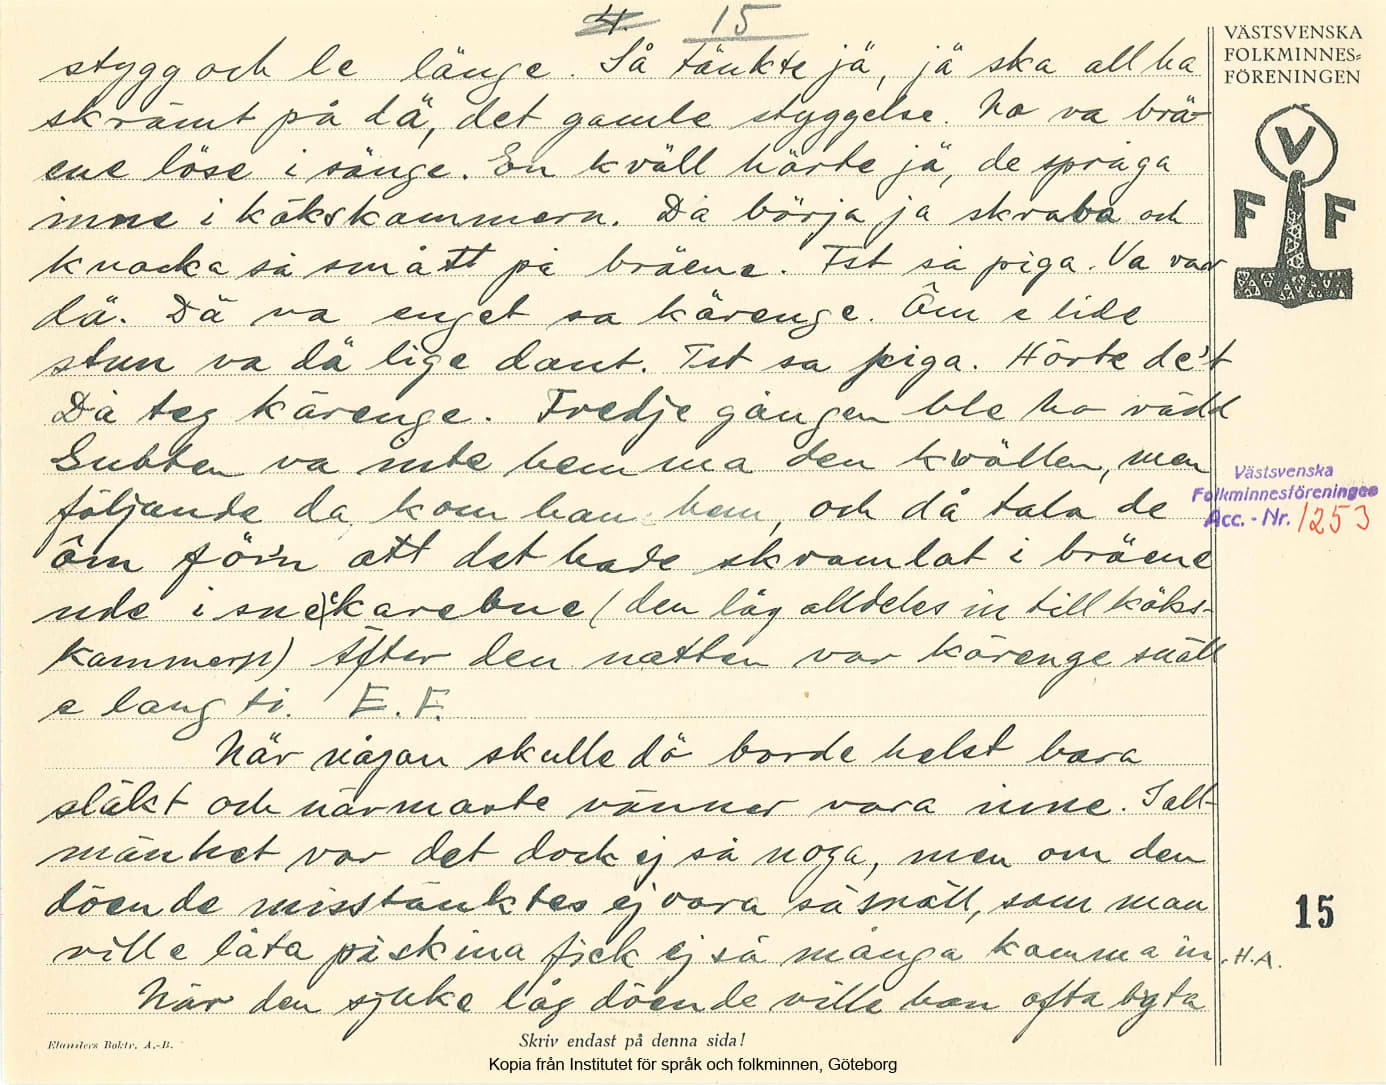 4. 15
VÄSTSVENSKA
FOLKMINNES=
FÖRENINGEN
V
F F
stygg och le länge. Så tänkte jä, jä ska all ha
skrämt på dä, det gamle styggelse. No va brä-
ene löse i sänge. En kväll hörte jä, de språga
inne i kökskammern. Då börja ja skraba och
knacka så smått på bräene. Tst sa piga. Va var
dä. Dä va enget sa kärenge. Ôm e lide
stun va dä lige dant. Tst sa piga. Hörte de't
Då teg kärenge. Tredje gången ble ho rädd
Gubben va inte hemma den kvällen, men
följande da kom han hem, och då tala de
ôm för'n att det hade skramlat i bräene
ude i snekarebue (den låg alldeles in till köks-
kammern) Äfter den natten var kärenge snäll
e lang ti. E. F.
När någon skulle dö borde helst bara
släkt och närmaste vänner vara inne. I all-
mänhet var det dock ej så noga, men om den
döende misstänktes ej vara så snäll, som man
ville låta påskina fick ej så många komma in. H.A.
När den sjuke låg döende ville han ofta byta
Västsvenska
Folkminnesföreningen
Acc. - Nr. 1253
15
Elanders Boktr. A.-B.
Skriv endast på denna sida!
Kopia från Institutet för språk och folkminnen, Göteborg